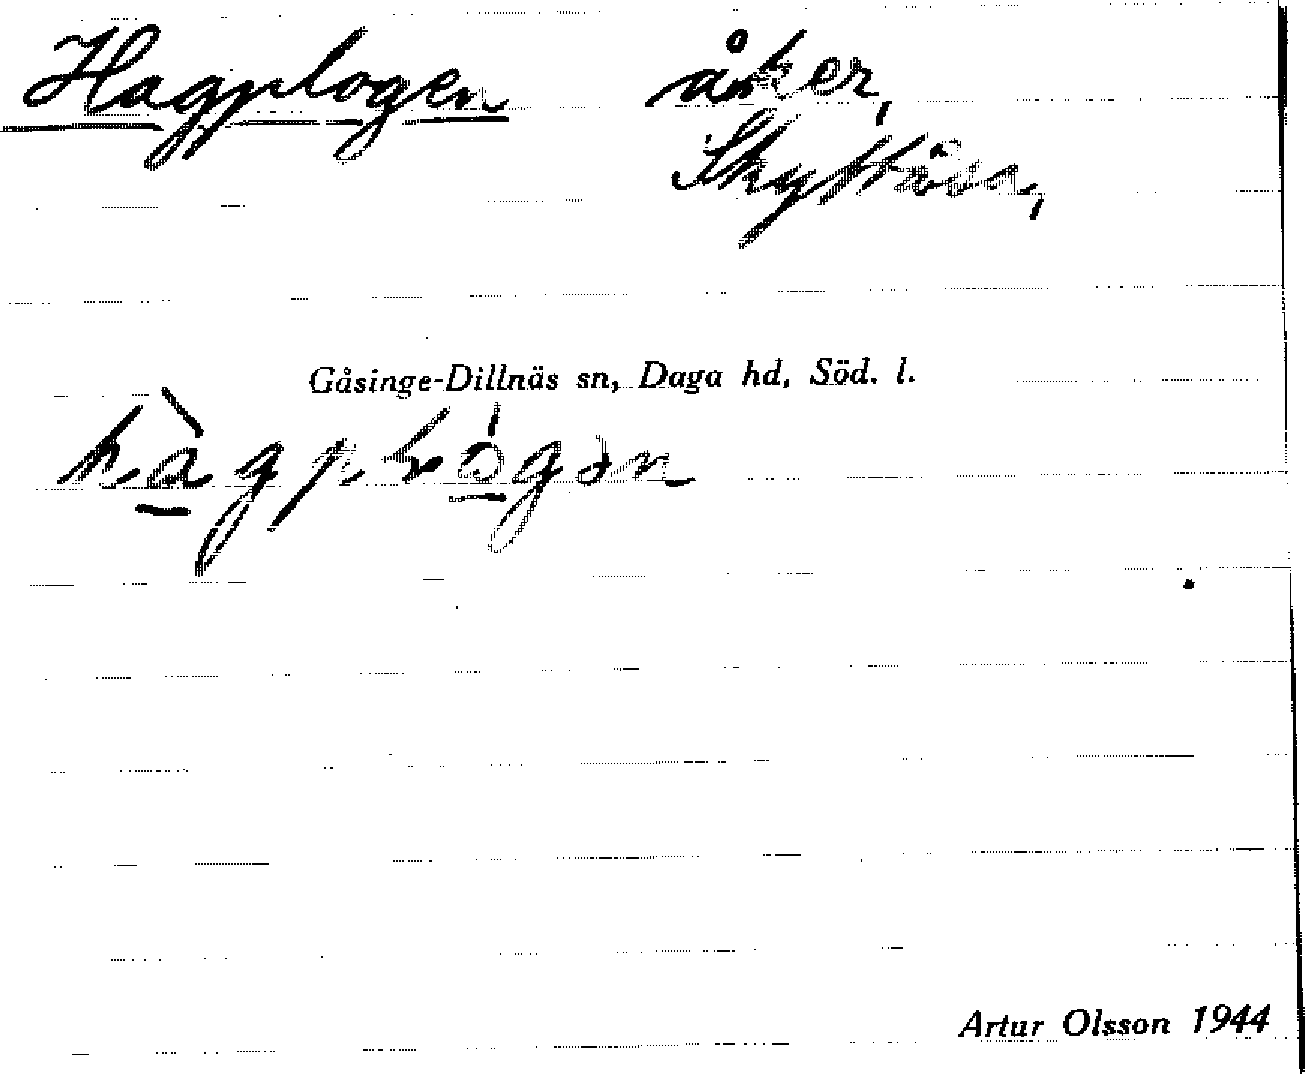 Hagplogen åker,
Skyttåsa,
Gåsinge-Dillnäs sn, Daga hd, Söd. l.
Artur Olsson 1944